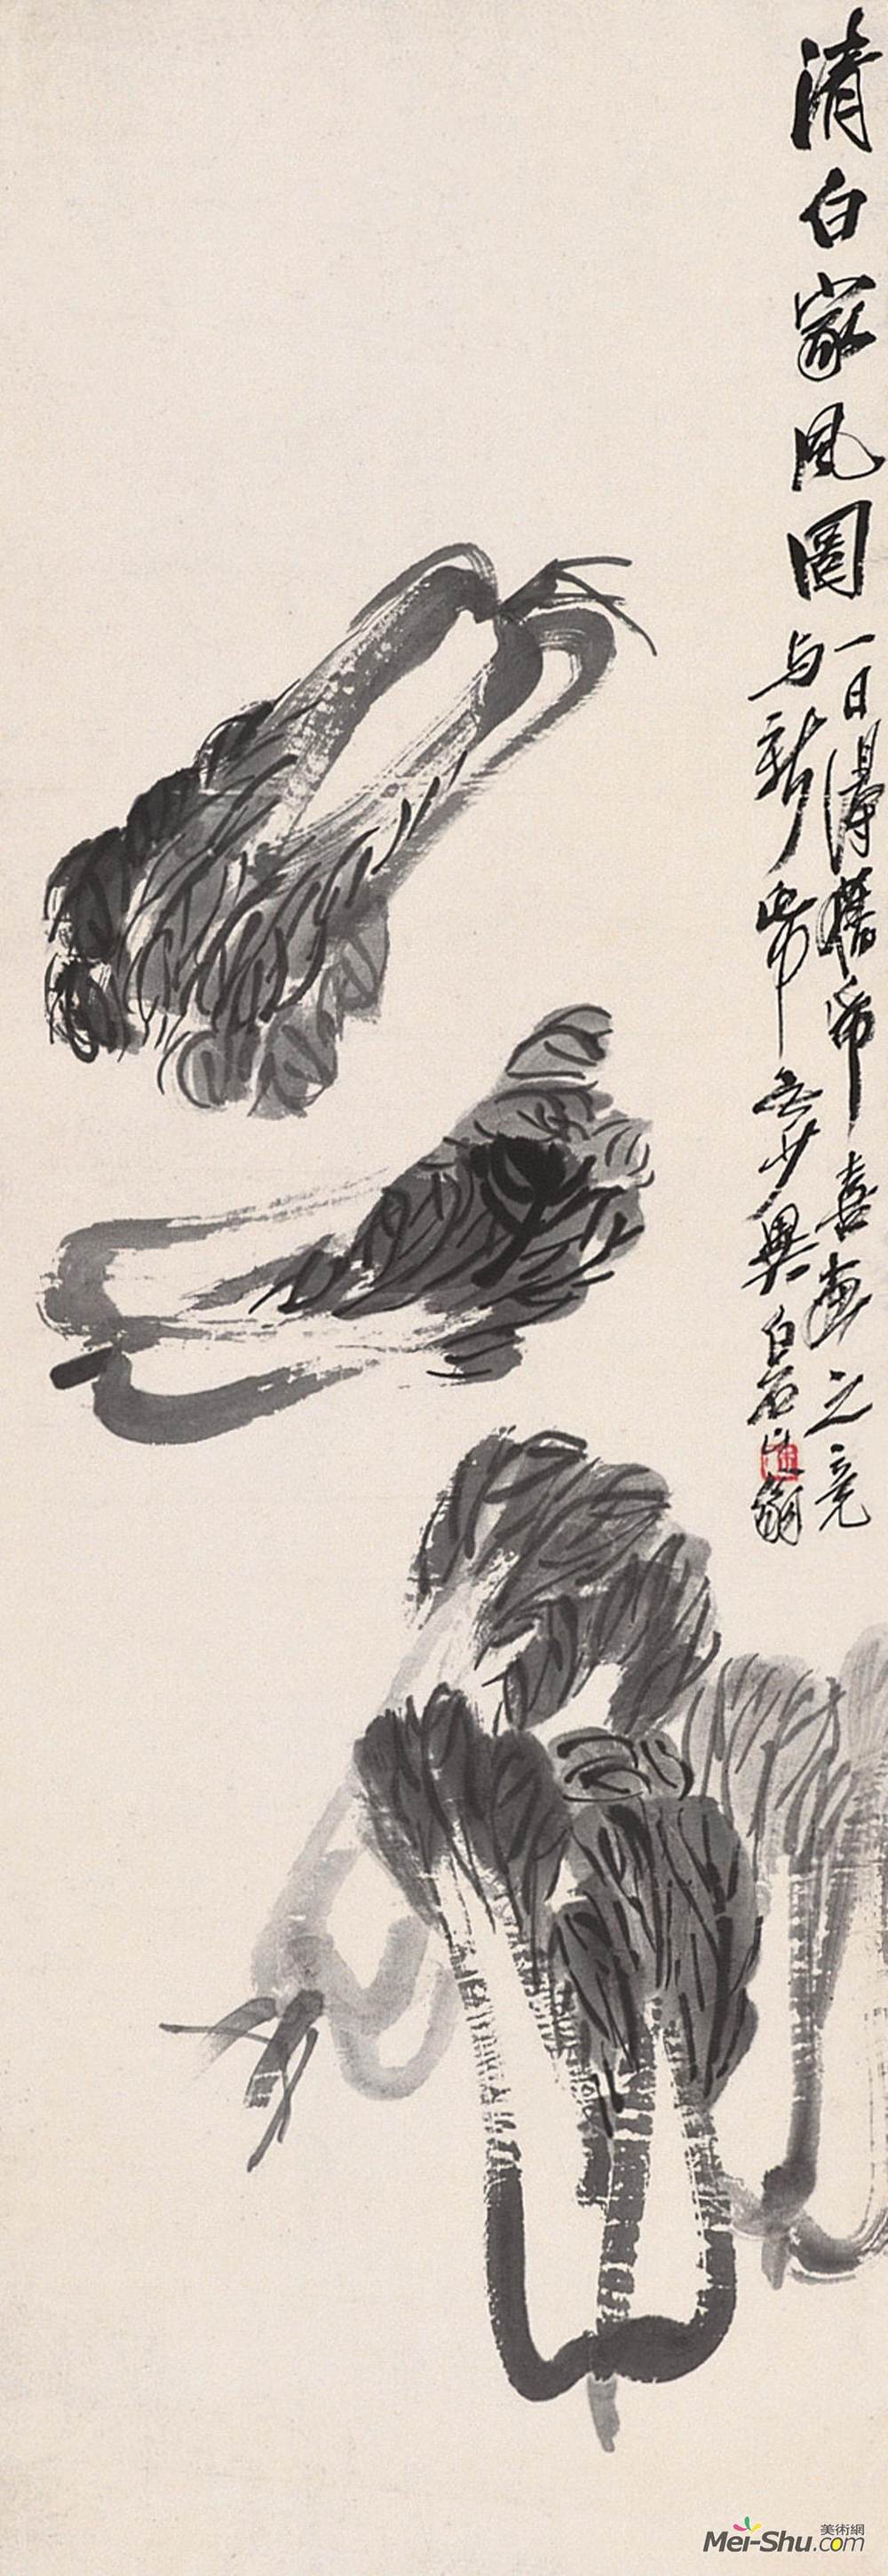 清白家風圖
一日得舊帋喜畫之竟
与新帋无少異白石山翁
美術網
Mei-Shu.com